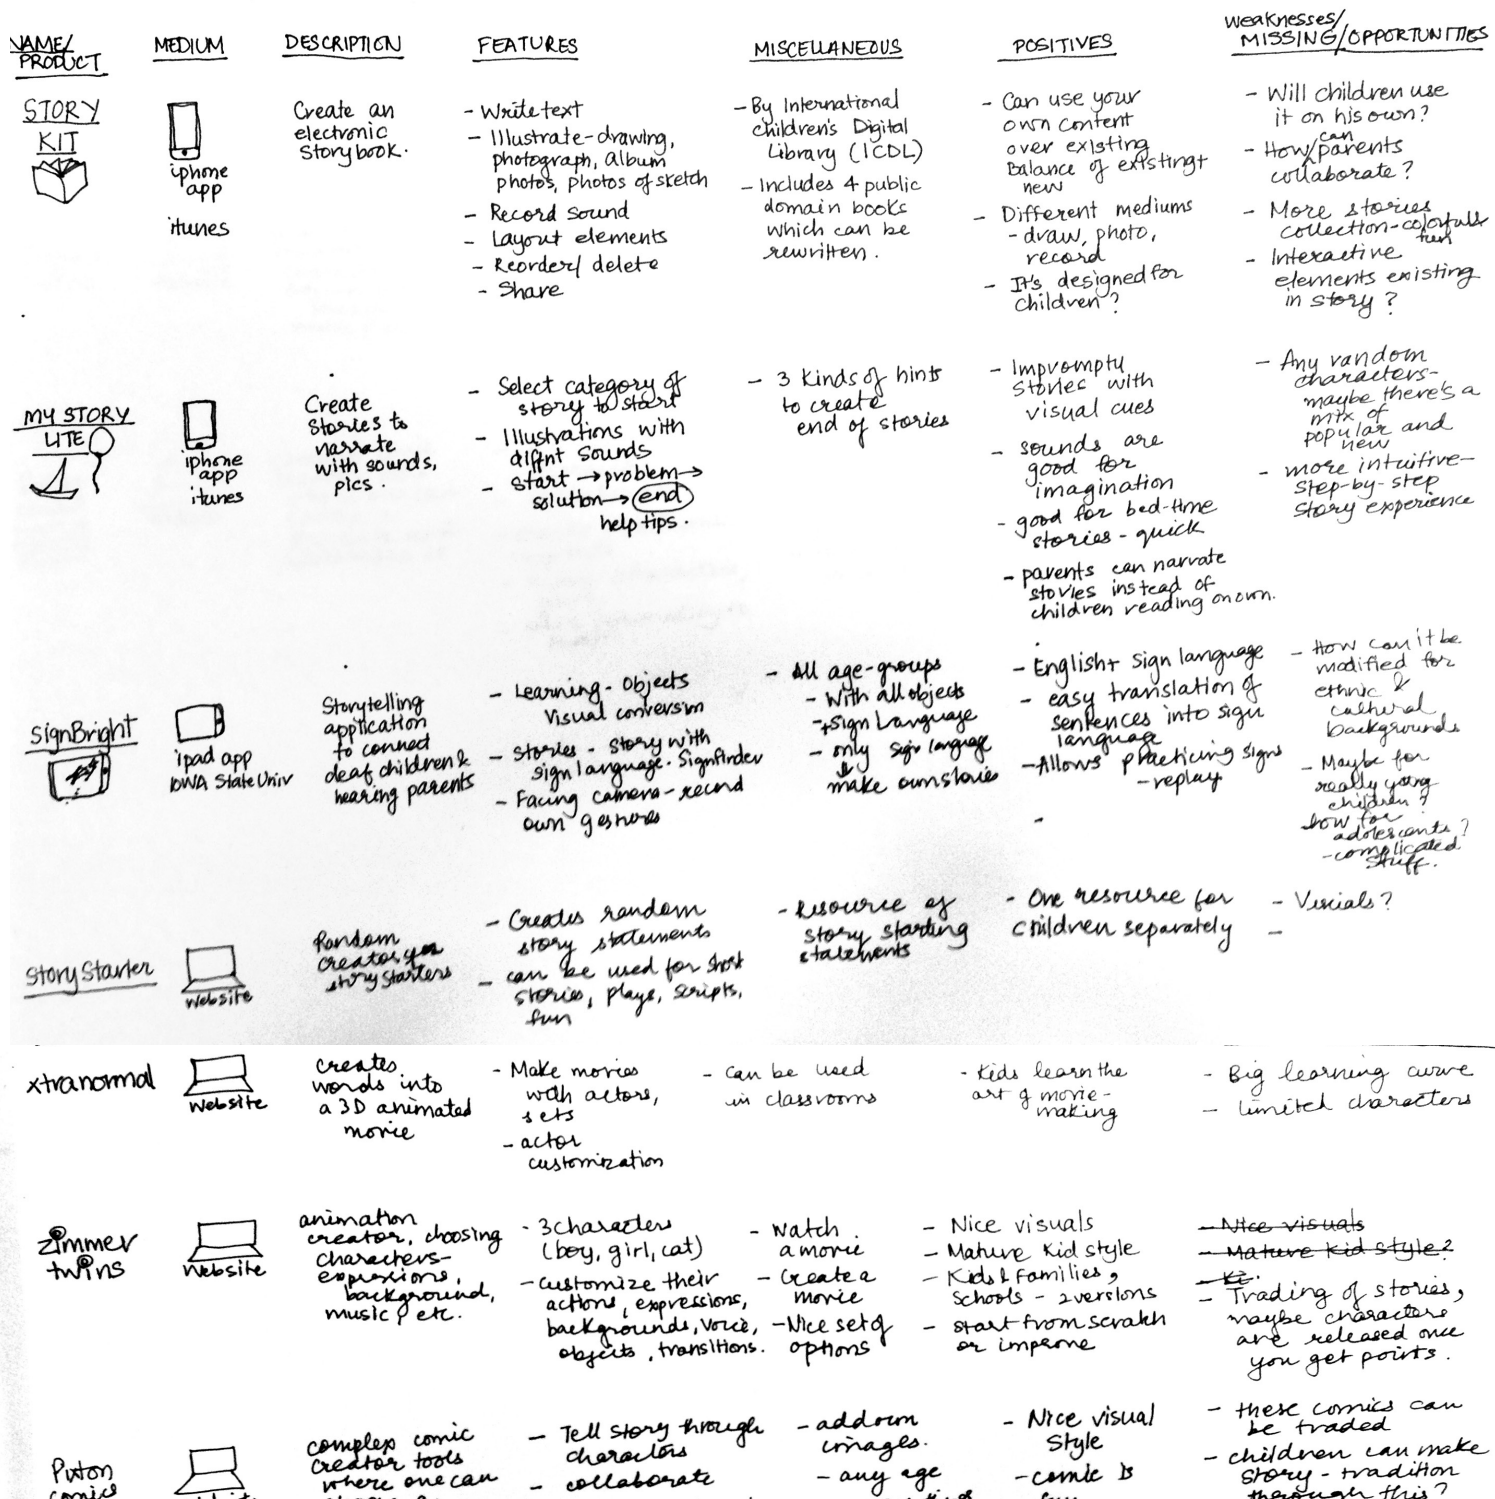 NAME/
PRODUCT
MEDIUM
DESCRIPTION
FEATURES
MISCELLANEOUS
POSITIVES
Weaknesses/
MISSING/OPPORTUNITIES
STORY
KIT
iphone
app
itunes
Create an
electronic
Storybook.
- Write text
- Illustrate-drawing,
photograph, album
photos, photos of sketch
- Record sound
- Layout elements
- Reorder/ delete
- Share
- By International
children's Digital
Library (ICDL)
- Includes 4 public
domain books
which can be
rewritten.
- Can use your
own content
over existing
Balance of existing+
new
- Different mediums
- draw, photo,
record
- It's designed for
children?
- Will children use
it on his own?
- How can parents
collaborate?
- More stories
collection-colorful
fun
- Interactive
elements existing
in story?
MY STORY
LITE
iphone
app
itunes
Create
Stories to
narrate
with sounds,
pics.
- Select category of
story to start
- Illustrations with
diffnt sounds
- Start → problem →
solution → end
help tips.
- 3 kinds of hints
to create
end of stories
- Impromptu
Stories with
visual cues
- sounds are
good for
imagination
- good for bed-time
stories - quick
- parents can narrate
stories instead of
children reading on own.
- Any random
characters-
maybe there's a
mix of
popular and
new
- more intuitive-
step-by-step
story experience
SignBright
ipad app
IOWA State Univ
Storytelling
application
to connect
deaf children &
hearing parents
- Learning - Objects
Visual conversion
- Stories - Story with
sign language. Signfinder
- Facing camera - record
own gestures
- All age-groups
- With all objects
+ Sign Language
- only sign language
make own stories
- English + sign language
- easy translation of
sentences into sign
language
- Allows practicing signs
- replay
-
- How can it be
modified for
ethnic &
cultural
backgrounds
- Maybe for
really young
children?
how for
adolescents?
- complicated
stuff.
Story Starter
Website
Random
creator for
story starters
- Creates random
story statements
- can be used for short
stories, plays, scripts,
fun
- Resource of
story starting
statements
- One resource for
children separately
- Visuals?
-
xtranormal
Website
creates
words into
a 3D animated
movie
- Make movies
with actors,
sets
- actor
customization
- can be used
in classrooms
- Kids learn the
art of movie-
making
- Big learning curve
- limited characters
zimmer
twins
Website
animation
creator, choosing
characters-
expressions,
background,
music etc.
- 3 characters
(boy, girl, cat)
- customize their
actions, expressions,
backgrounds, voice,
objects, transitions.
- watch
a movie
- Create a
movie
- Nice set of
options
- Nice visuals
- Mature kid style
- Kids & Families,
Schools - 2 versions
- start from scratch
or improve
- Nice visuals
- Mature kid style?
- Trading of stories,
maybe characters
are released once
you get points.
Pixton
comics
complex comic
creator tools
where one can
- Tell story through
characters
- collaborate
- add own
images.
- any age
- Nice visual
Style
- comic is
- these comics can
be traded
- children can make
story - tradition
through this?